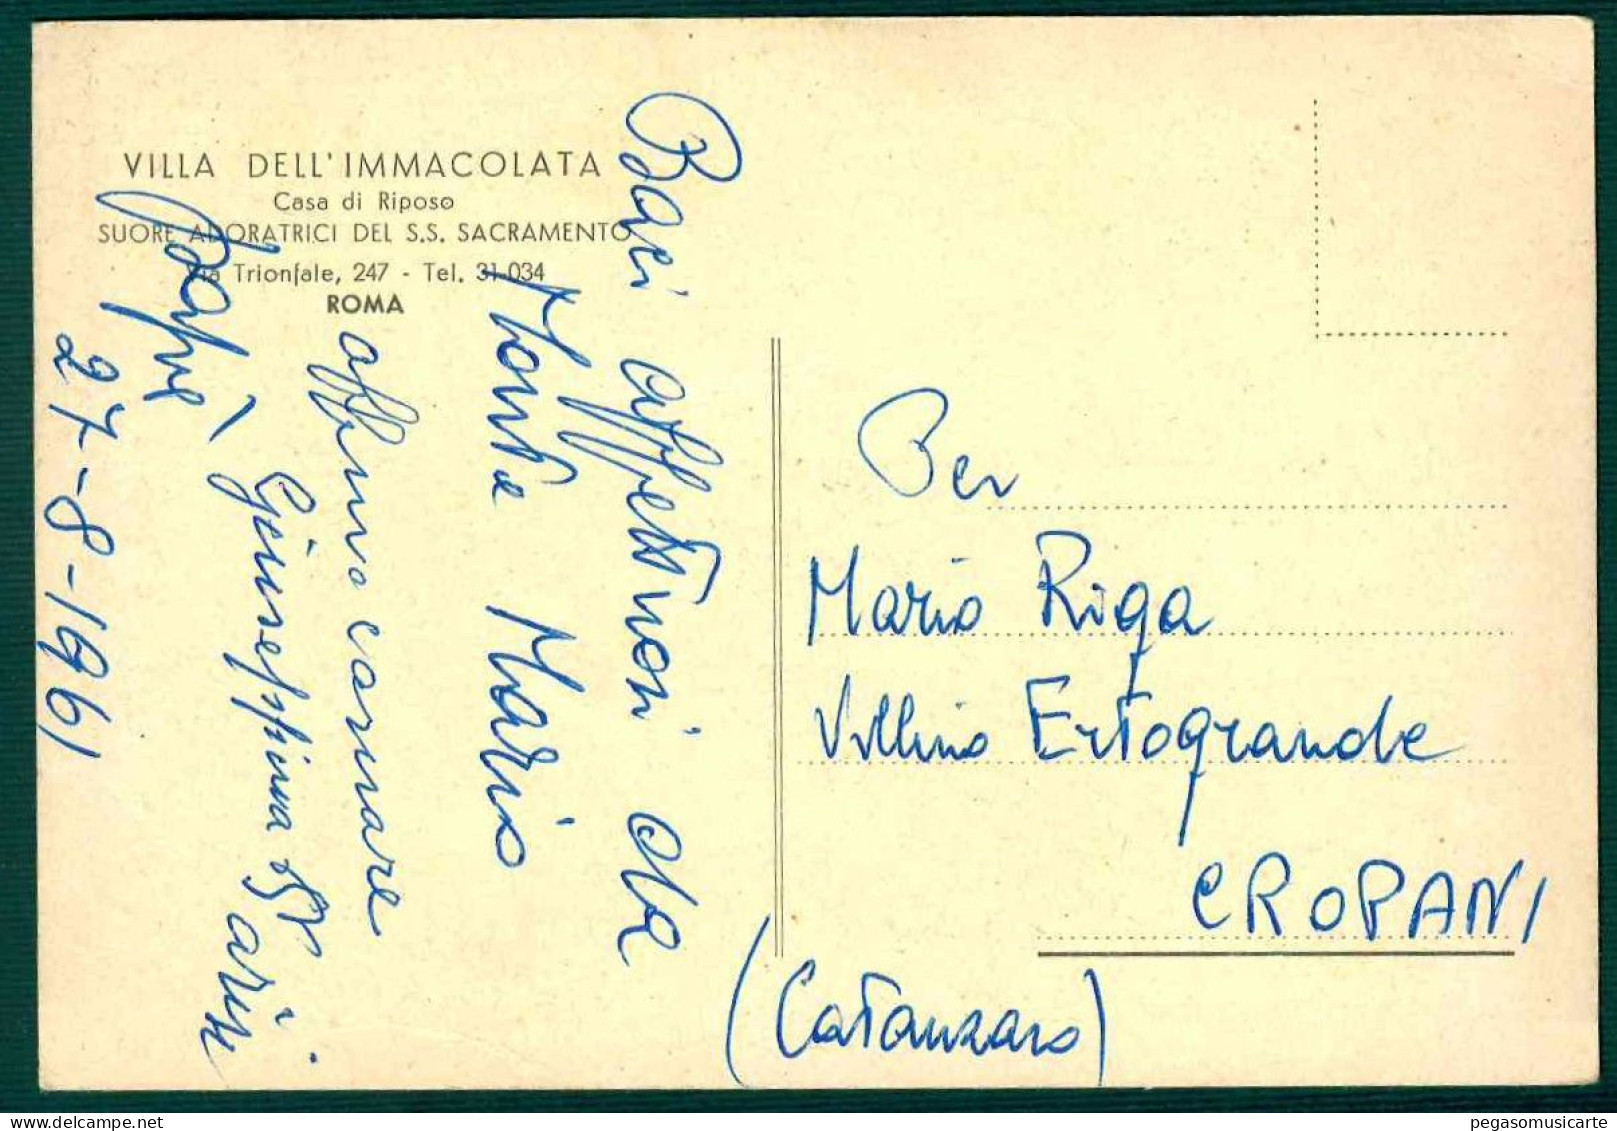 VILLA DELL'IMMACOLATA
Casa di Riposo
SUORE ADORATRICI DEL S.S. SACRAMENTO
Via Trionfale, 247 - Tel. 31-034
ROMA
Baci affettuosi da
Mario
Giuseppina
27-8-1961
Per
Mario Riga
Villino Ertogrande
CROPANI
(Catanzaro)
pegasomusicarte